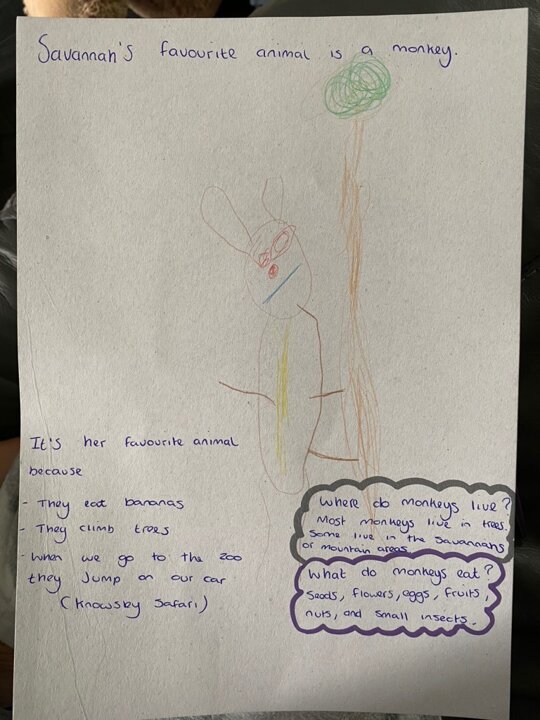 Savannah's favourite animal is a monkey.
It's her favourite animal
because
- They eat bananas
- They climb trees
- When we go to the zoo
they jump on our car
(Knowsby Safari)
Where do monkeys live?
Most monkeys live in trees.
Some live in the Savannahs
or mountain areas
What do monkeys eat?
Seeds, flowers, eggs, fruits,
nuts, and small insects.